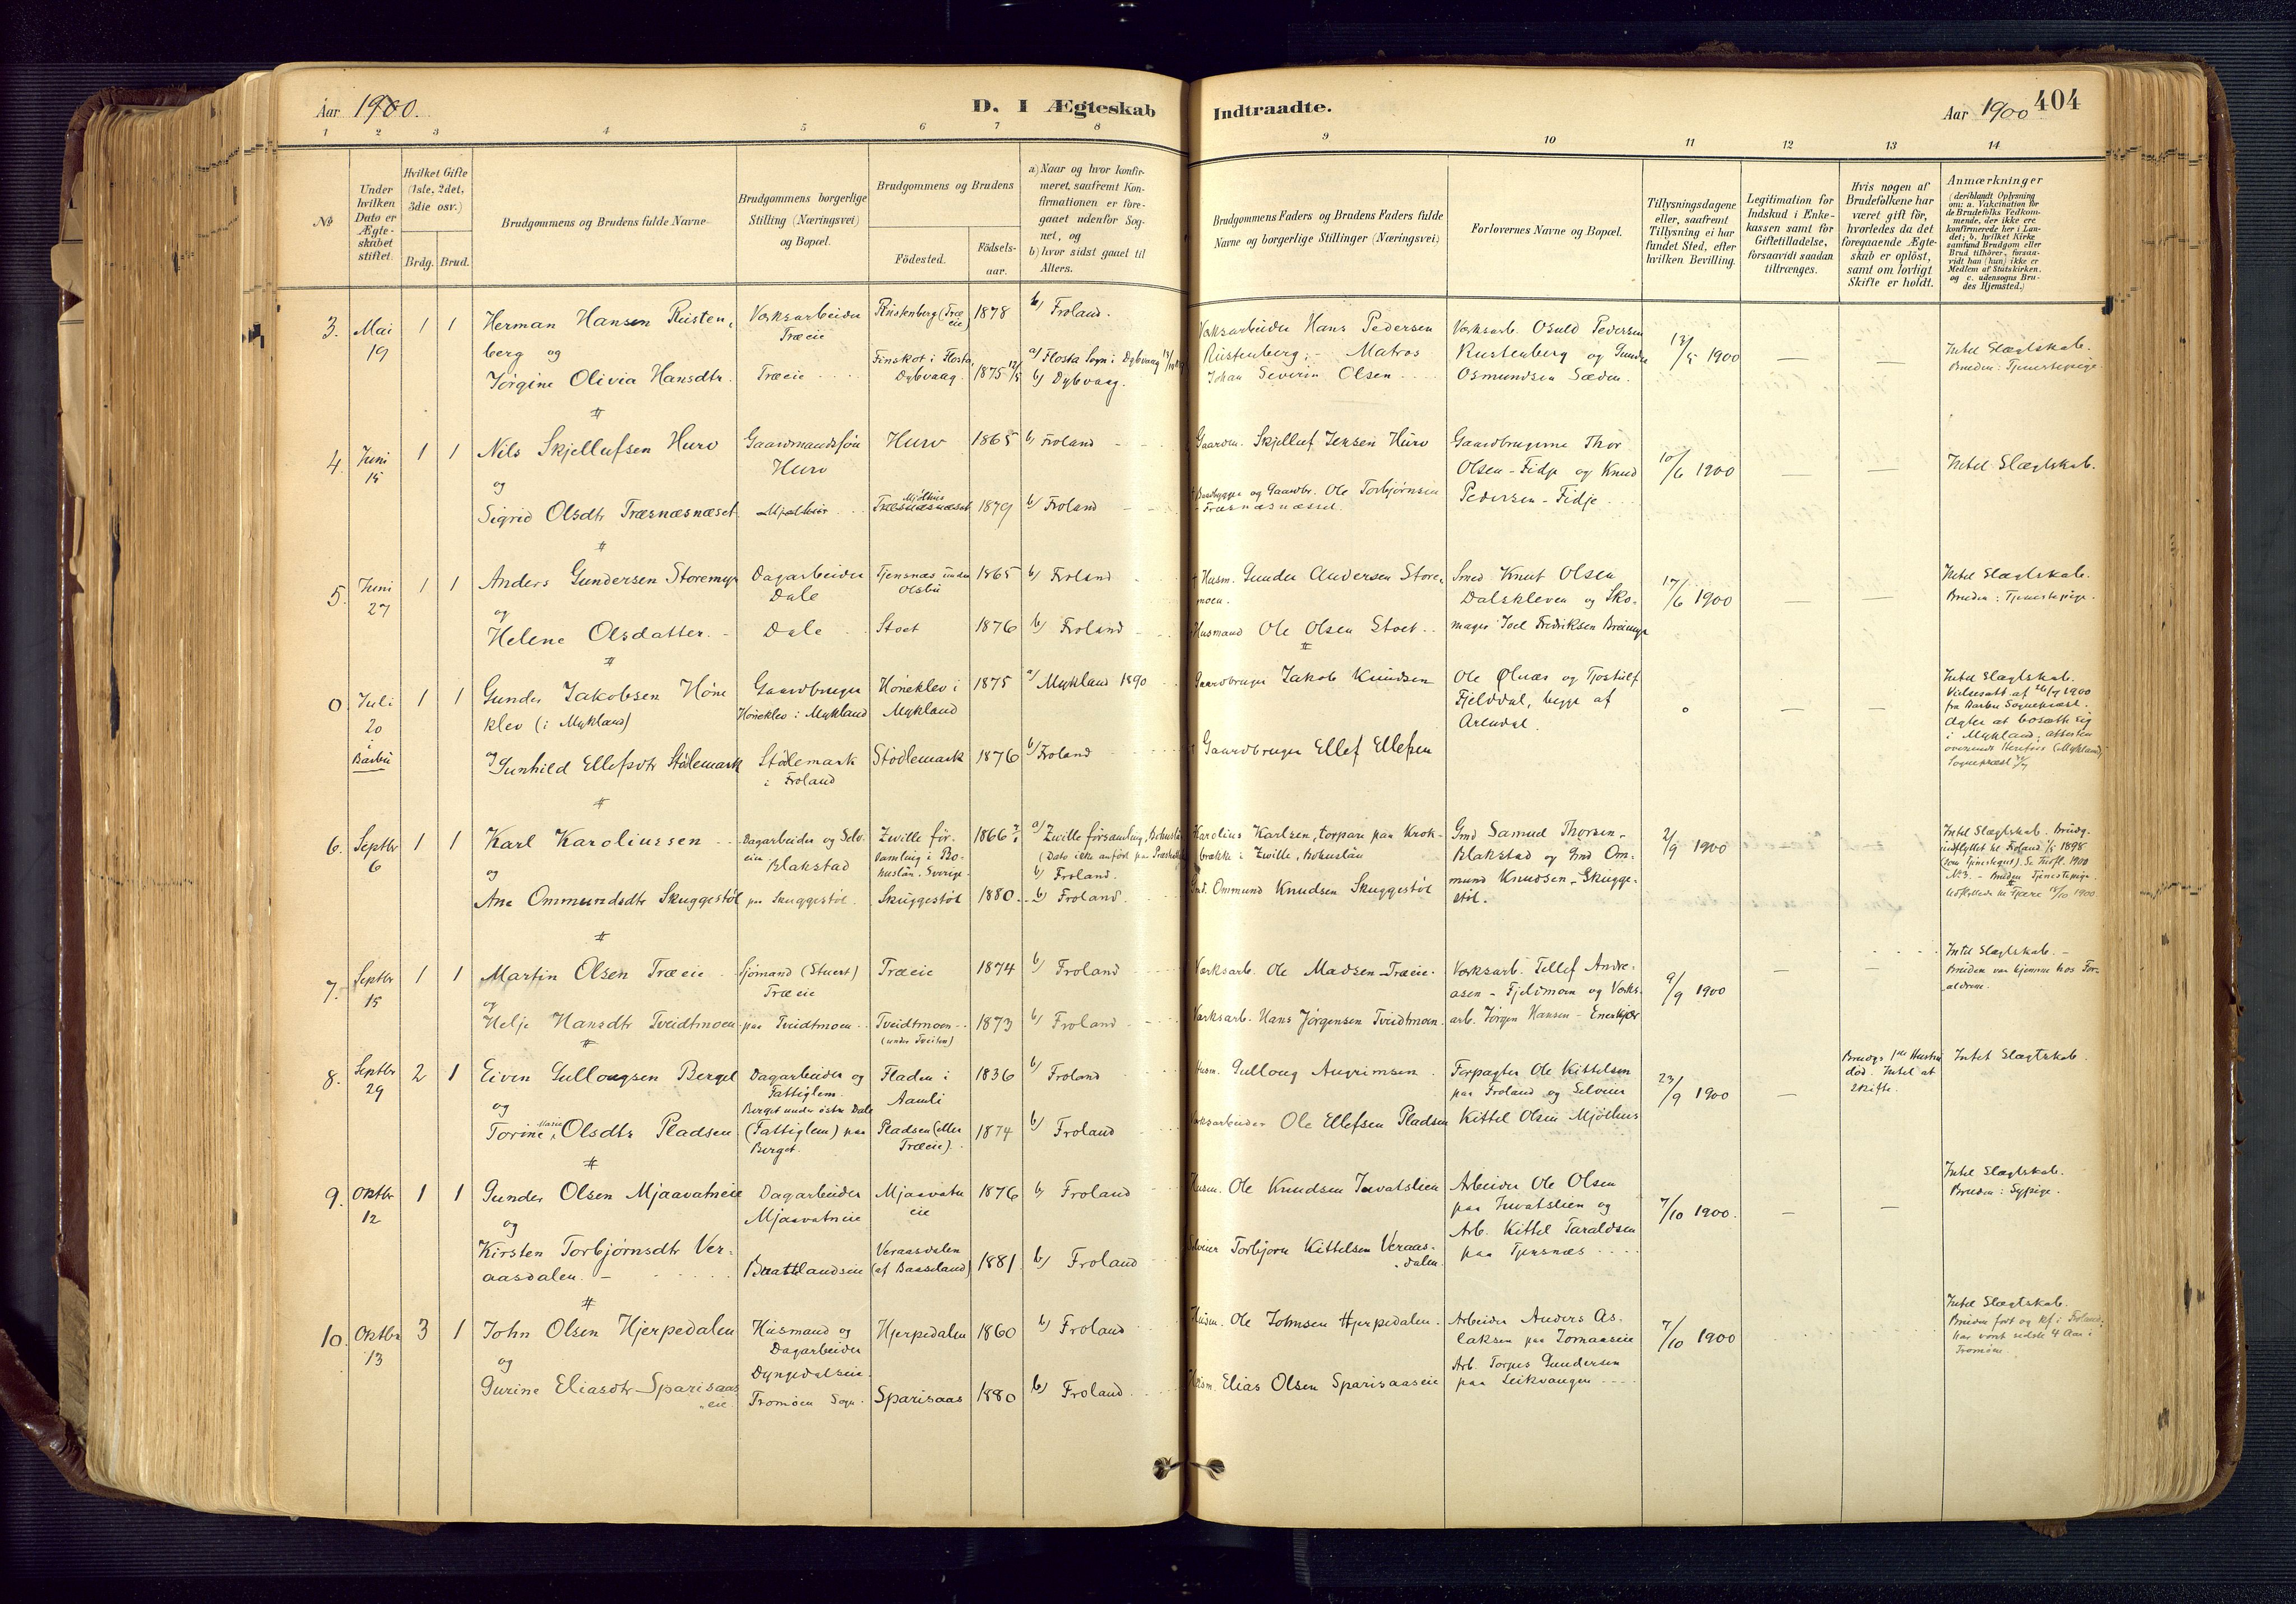 Aar 1900.
D. I Ægteskab
Indtraadte.
Aar 1900
404
1 2 3 4 5 6 7 8 9 10 11 12 13 14
No
Under hvilken Dato er Ægteskabet stiftet.
Hvilket Gifte (1ste, 2det, 3die osv.)
Brdg. Brud.
Brudgommens og Brudens fulde Navne
Brudgommens borgerlige Stilling (Næringsvei) og Bopæl.
Brudgommens og Brudens
Födested.
Födselsaar.
a) Naar og hvor konfirmeret, saafremt Konfirmationen er foregaaet udenfor Sognet, og
b) hvor sidst gaaet til Alters.
Brudgommens Faders og Brudens Faders fulde Navne og borgerlige Stillinger (Næringsvei)
Forlovernes Navne og Bopæl.
Tillysningsdagene eller, saafremt Tillysning ei har fundet Sted, efter hvilken Bevilling.
Legitimation for Indskud i Enkekassen samt for Giftetilladelse, forsaavidt saadan tiltrænges.
Hvis nogen af Brudefolkene har været gift før, hvorledes da det foregaaende Ægteskab er oplöst, samt om lovligt Skifte er holdt.
Anmærkninger
(deriblandt Oplysning om: a. Vakcination for de Brudefolks Vedkommende, der ikke ere konfirmerede her i Landet; b. hvilket Kirkesamfund Brudgom eller Brud tilhörer, forsaavidt han (hun) ikke er Medlem af Statskirken, og c. udensogns Brudes Hjemsted.)
3. Mai 19 1 1
Herman Hansen Rüstenberg og
Jörgine Olivia Hansdtr.
Værksarbeider Træeie
Træeie
Rüstenberg (Træeie) 1878
Finskot i Flosta, Dybvaag 1875 12/5
b) Froland.
a) Flosta Sogn i Dybvaag
b) Dybvaag.
Værksarbeider Hans Pedersen Rüstenberg; - Matros
Johan Severin Olsen
Værksarb. Osuld Pedersen Rustenberg og Gunder Osmundsen Sæden.
13/5 1900
Intet Slægtskab.
Bruden: Tjenestepige
4. Juni 15 1 1
Nils Skjellufsen Hurv
og
Sigrid Olsdtr Træsnæsnæset
Gaardmandssön Hurv
Hurv 1865
Mjölhus Træsnæsnæset 1879
b) Froland
b) Froland
Gaardm. Skjelluf Jensen Hurv
og Gaardbr. Ole Torbjørnsen Træsnæsnæsset.
Gaardbrugerne Thor Olsen-Fidje og Knud Pedersen-Fidje
10/6 1900
Intet Slægtskab.
5. Juni 27 1 1
Anders Gundersen Storemyr
og
Helene Olsdatter.
Dagarbeider Dale
Dale
Tjensnæs under Olsbu 1865
Stoet 1876
b) Froland
b) Froland
Husm. Gunder Andersen Storemoen.
Husmand Ole Olsen Stoet
Smed Knut Olsen Dalskleven og Skomager Joel Fredriksen Breimyr
17/6 1900
Intet Slægtskab.
Bruden: Tjenestepige.
0. Juli 20 i Barbu 1 1
Gunder Jakobsen Høneklev (i Mykland)
og Gunhild Ellefsdtr Stødlemark
Gaardbruger Høneklev i Mykland
Stödlemark i Froland
Høneklev i Mykland 1875
Stödlemark 1876
a) Mykland 1890
b) Froland
Gaardbruger Jakob Knudsen
Gaardbruger Ellef Ellefsen
Ole Ølnæs og Tjostolf Fjelddal, begge af Arendal.
Intet Slægtskab.
Vielsesatt. af 26/7 1900 fra Barbu Sogneprest.
Agter at bosætte sig i Mykland; attesten oversendt Herefoss (Mykland) Sogneprest
6. Septbr 6 1 1
Karl Karoliussen
og
Ane Ommundsdtr Skuggestöl
Dagarbeider og Selveier Blakstad
paa Skuggestöl
Zwille församling i Bohuslän. Sverige 1866
Skuggestöl 1880
a) Zwille församling, Bohuslän
b) Froland.
b) Froland.
Karolius Karlsen, torpare paa Krokbrække i Zwille, Bohuslän
Gmd. Ommund Knudsen Skuggestöl
Gmd Samuel Thorsen Blakstad og Gmd Ommund Knudsen - Skuggestöl.
2/9 1900
Intet Slægtskab. Brudg. indflyttet til Froland 1/5 1898 No 3. - Bruden Tjenestepige.
Udflyttede til Fjære 18/10 1900.
7. Septbr 15 1 1
Martin Olsen Træeie
og
Helje Hansdtr Tveidtmoen
Sjömand (Stuert) Træeie
paa Tveidtmoen
Træeie 1874
Tveidtmoen (under Tveiten) 1873
b) Froland
b) Froland
Værksarb. Ole Madsen-Træeie.
Værksarb. Hans Jörgensen Tveidtmoen.
Værksarb. Tellef Andreasen - Fjeldmoen og Værksarb. Jörgen Hansen - Enerkjær
9/9 1900
Intet Slægtskab. -
Bruden var hjemme hos Forældrene.
8. Septbr 29 2 1
Eiven Gullougsen Berget
og
Torine Marie Olsdtr Pladsen
Dagarbeider og Fattiglem. Berget under østre Dale
(Fattiglem) paa Berget.
Fladen i Aamli 1836
Pladsen (eller Træeie). 1874
b) Froland
b) Froland
Husm. Gulloug Augrimsen.
Værksarbeider Ole Ellefsen Pladsen
Forpagter Ole Kittelsen paa Froland og Selveier Kittel Olsen Mjölhus
23/9 1900
Brudgs 1ste Hustru död. Intet at skifte.
Intet Slægtskab.
9. Oktbr 12 1 1
Gunder Olsen Mjaavatneie
og
Kirsten Torbjørnsdtr Veraasdalen.
Dagarbeider Mjaavatneie
Baaslandseie
Mjaavatneie 1876
Veraasdalen (af Baasland) 1881.
b) Froland
b) Froland
Husm. Ole Knudsen Juvatslien
Selveier Torbjørn Kittelsen Veraasdalen.
Arbeider Ole Olsen paa Juvatslien og Arb. Kittel Taraldsen paa Tjersnæs
7/10 1900.
Intet Slægtskab.
Bruden: Sypige.
10. Oktbr 13 3 1
John Olsen Hjerpedalen
og
Gurine Eliasdtr Sparisaaseie
Husmand og Dagarbeider Dyngedalseie
Tromöen Sogn.
Hjerpedalen 1860
Sparisaas 1880
b) Froland
b) Froland
Husm. Ole Johnsen Hjerpedalen.
Husm. Elias Olsen Sparisaaseie
Arbeider Anders Aslaksen paa Jomaaseie
Arb. Torjus Gundersen paa Leikvangen
7/10 1900
Intet Slægtskab.
Bruden født og kf. i Froland; har været sidste 4 Aar i Tromöen.